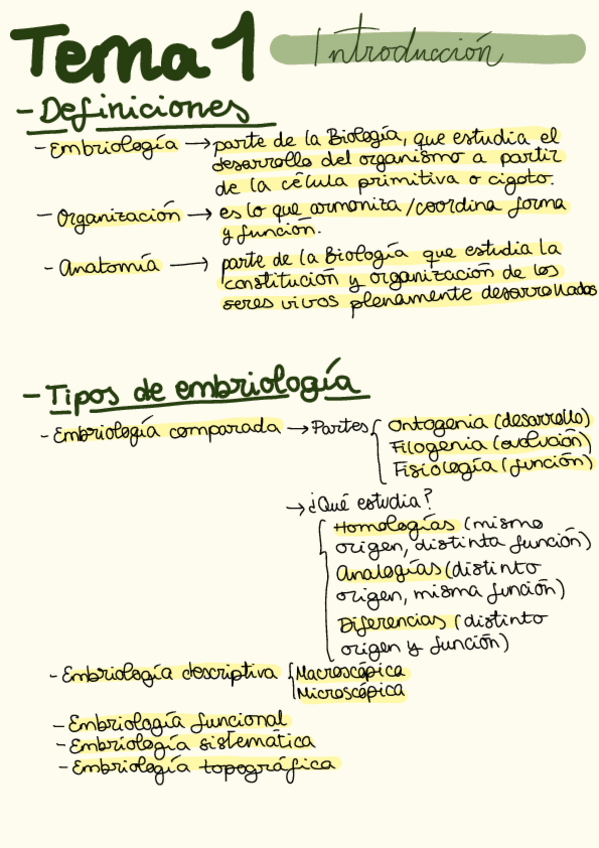 Tema 1 Introducción
- Definiciones
- Embriología → parte de la Biología, que estudia el
desarrollo del organismo a partir
de la célula primitiva o cigoto.
- Organización → es lo que armoniza/coordina forma
y función.
- Anatomía → parte de la Biología que estudia la
constitución y organización de los
seres vivos plenamente desarrollados
- Tipos de embriología
- Embriología comparada → Partes { Ontogenia (desarrollo)
Filogenia (evolución)
Fisiología (función)
→ ¿Qué estudia?
{ Homologías (mismo
origen, distinta función)
Analogías (distinto
origen, misma función)
Diferencias (distinto
origen y función)
- Embriología descriptiva { Macroscópica
Microscópica
- Embriología funcional
- Embriología sistemática
- Embriología topográfica